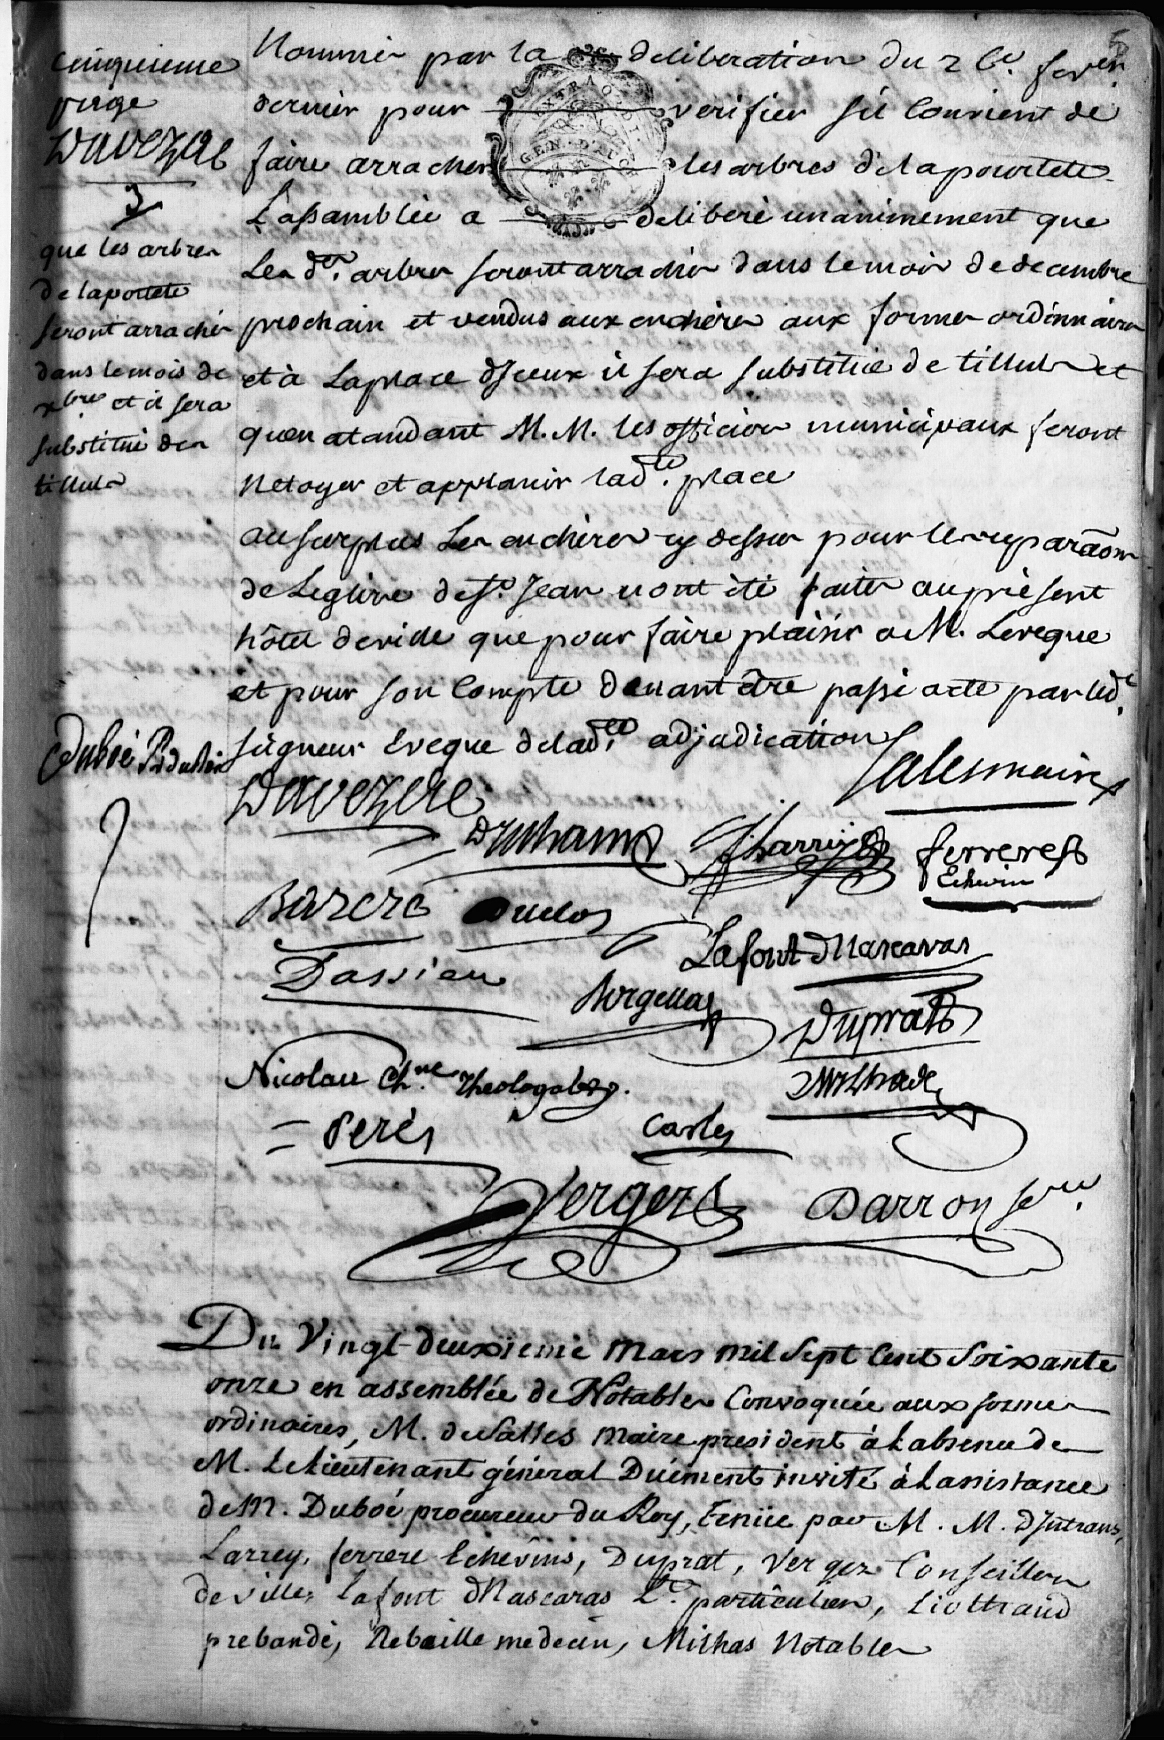 5
cinquieme
page
Davezac
3
que les arbres
de la portete
seront arrachés
dans le mois de
xbre et il sera
substitué des
tilluls
Nommés par la deliberation du 26e. fever
dernier pour verifier sil convient de
faire arracher les arbres de la pourtete
L'assamblée a deliberé unanimement que
Les drs. arbres seront arrachés dans le mois de decembre
prochain et vendus aux encheres aux formes ordinnaires
et à La place d'iceux il sera substitué de tilluls et
quen atandant M.M. les officiers municipaux feront
netoyer et applanir lade. place
au surplus Les encheres cy dessus pour les reparaõns
de Leglise de St. Jean nont été faites au présent
hôtel de ville que pour faire plaisir a M. Leveque
et pour son Compte devant être passé acte par led.
seigneur Eveque de lade. adjudication
Duboé Pr du Roi
Salesmaire
Davezac
Druhaims
Jharrix
ferrere
Echevin
Barere
Duclos
Lafont dMascaras
Dassieu
Duprat
Nicolau Chne. Theologal
Milhade
Perés
Carles
Vergers
Darron secre.
Du Vingt-deuxieme Mars mil sept Cent Soixante
onze en assemblée de Notables Convoquée aux formes
ordinaires, M. de Salles Maire president à Labsence de
M. Le Lieutenant général Duëment invité à Lassistance
de M. Duboé procureur du Roy, Tenüe par M. M. DIntrans,
Larrey, ferrere Echevins, Duprat, Vergez Conseillers
de ville, Lafont dMascaras Lt. particulier, Liottraud
prebandé, Rebaille medecin, Milhas Notables